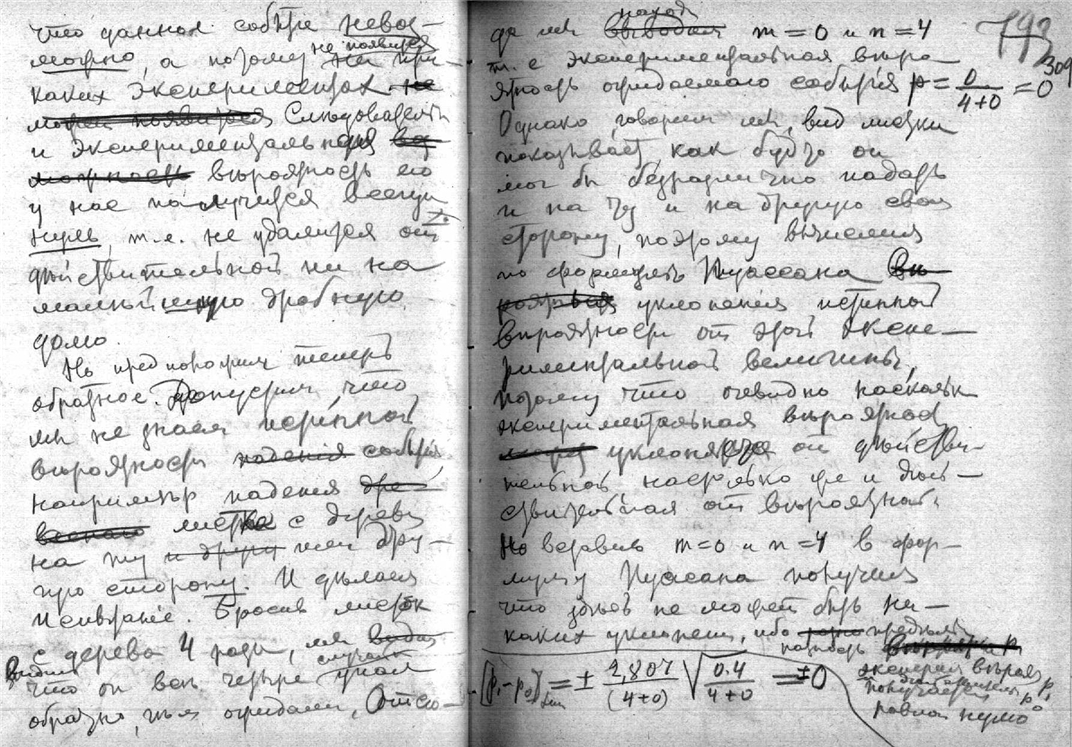 что данное событіе невоз-
можно, а потому не появится ни при
каких экспериментах не
может появиться Следовательно
и экспериментальная
вѣроятность его
у нас получится всегда
нуль, т.е. не удалится от
дѣйствительной ни на
малѣйшую дробную
долю.
Но предположим теперь
обратное. Допустим, что
мы не знаем истинной
вѣроятности паденія событія,
напримѣр паденія
листка с дерева
на ту и другую или дру-
гую сторону. И дѣлаем
испытаніе. Бросив листок
с дерева 4 раза, мы
видим что он всѣ четыре упал
обратно, чѣм ожидали, Отсю-
да мы выводим наход. m = 0 и n = 4
т. е экспериментальная вѣро-
ятность ожидаемаго событія p = 0/(4+0) = 0
793
309
Однако, говорим мы, вид листка
показывает, как будто он
мог бы безразлично падать
и на ту и на другую свою
сторону, поэтому вычислим
по формулѣ Пуассона
уклоненія истинной
вѣроятности от этой экспе-
риментальной величины,
потому что очевидно насколько
экспериментальная вѣроятность
уклоняется от дѣйстви-
тельной настолько же и дѣй-
ствительная от вѣроятной.
Но вставив m=0 и n=4 в фор-
мулу Пуассона получим
что здѣсь не может быть ни-
каких уклоненій, ибо
[p₁-p₀]lim = ± 2,807/(4+0) √(0.4/(4+0)) = ±0
эксперим вѣроят p₁
получается
равной нулю